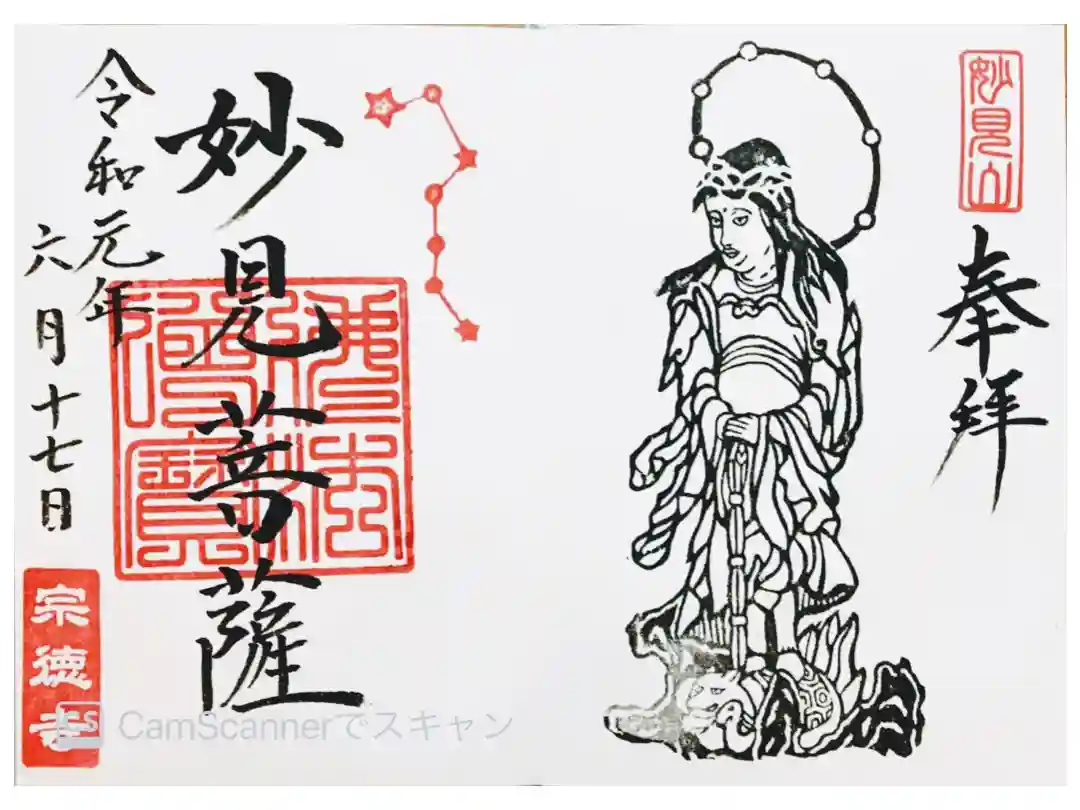 妙見山
奉拝
妙見菩薩
佛法僧寶
令和元年
六月十七日
宗徳寺
CS CamScannerでスキャン